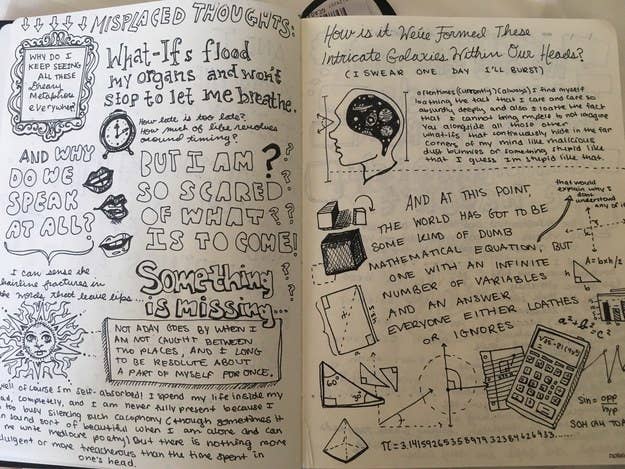 MISPLACED THOUGHTS:
WHY DO I
KEEP SEEING
ALL THESE
Dream
Metaphors
everywhere?
What-Ifs flood
my organs and won't
stop to let me breathe.
How late is too late?
How much of life revolves
around timing?
AND WHY
DO WE
SPEAK
AT ALL?
BUT I AM ?
SO SCARED
OF WHAT??
IS TO COME!
I can sense the
hairline fractures in
the words that leave lips...
Something
is missing...
NOT A DAY GOES BY WHEN I
AM NOT CAUGHT BETWEEN
TWO PLACES, AND I LONG
TO BE RESOLUTE ABOUT
A PART OF MYSELF FOR ONCE.
Well of course I'm self-absorbed! I spend my life inside my
completely, and I am never fully present because I
too busy silencing such cacophony (though sometimes it
sound sort of beautiful when I am alone and can
write mediocre poetry) but there is nothing more
or more treacherous than the time spent in
one's head.
How is it We've Formed These
Intricate Galaxies Within Our Heads?
(I SWEAR ONE DAY I'LL BURST)
oftentimes (currently) (always) I find myself
loathing the fact that I care and care so
absurdly deeply, and also I loathe the fact
that I cannot bring myself to not imagine
you alongside all those other
what-ifs that continuously hide in the far
corners of my mind like malicious
dust bunnies or something stupid like
that. I guess I'm stupid like that.
that would
explain why I
don't
understand
any of it
AND AT THIS POINT,
THE WORLD HAS GOT TO BE
SOME KIND OF DUMB
MATHEMATICAL EQUATION, BUT
ONE WITH AN INFINITE
NUMBER OF VARIABLES
AND AN ANSWER
EVERYONE EITHER LOATHES
OR IGNORES
A=bxh/2
h
b
a²+b²=c²
Sin = opp
hyp
SOH CAH TOA
π=3.14159265358979323846264 33.....